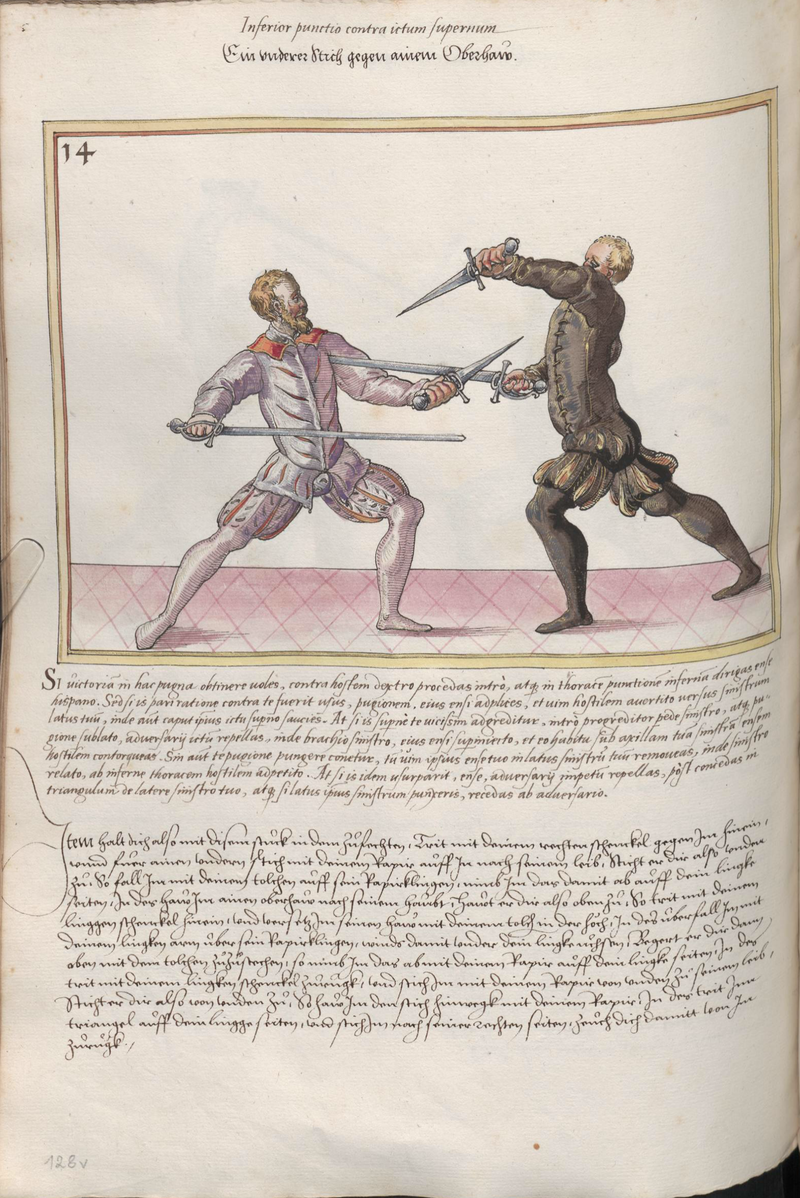 Inferior punctio contra ictum supernum
Ein vnderer Stich gegen ainem Oberhaw.
14
SI victoriã in hac pugna obtinere voles, contra hostem dextro procedas intrò, atq; in thoracẽ punctionẽ infernã dirigas ense
hispano. Sed si is pari ratione contra te fuerit usus, pugionem eius ensi adplices, et uim hostilem auertito versus sinistrum
latus tuũ, inde aut caput ipsius ictu supno saucies. At si is supne te vicissim adgreditur, intrò progreditor pede sinistro, atq; pu-
gione sublato, adversarij ictũ repellas, inde brachio sinistro, eius ensi supiniecto, et eo habitu sub axillam tuã sinistrã ensem
hostilem contorqueas. Sin aut te pugione pungere conetur, tu uim ipsius ense tuo in latus sinistrũ tuũ remoueas, inde sinistro
relato, ab inferne thoracem hostilem adpetito. At si is idem usurparit, ense, adversarij impetũ repellas, pòst concedas in
triangulum de latere sinistro tuo, atq; si latus ipsius sinistrum punxeris, recedas ab adversario.
Item halt dich also mit disem stuck in dem zufechten, Trit mit deinem rechten schenckel gegen Im hinein,
vnnd fuer ainen vndern stich mit deinem Rapir auff In nach seinem leib, Sticht er dir also vnden
zu, So fall Im mit deinem tolchen auff sein Rapirklingen, nimb Im das damit ab auff dein lingke
seiten, In des haw Im ainen oberhaw nach seinem haubt, Hawt er dir also oben zu, So trit mit deinem
linggen schenckel hinein, vnd versetz Im seinen haw mit deinem tolch in der höch, In des überfall Im mit
deinem lingken arm über sein Rapirklingen, winds damit vnder dein lingke vchsen, Begert er dir dann
oben mit dem tolchen zuzustechen, so nimb Im das ab mit deinem Rapir auff dein lingke seiten, In des
trit mit deinem lingken schenckel zurugk, vnd stich Im mit deinem Rapir von vnden zu seinem leib,
Sticht er dir also von vnden zu, So haw Im den stich hinwegk mit deinem Rapir, In des trit Im
triangel auff dein lingge seiten, vnd stich In nach seiner rechten seiten, zeuch dich damitt von Im
zurugk.
128v